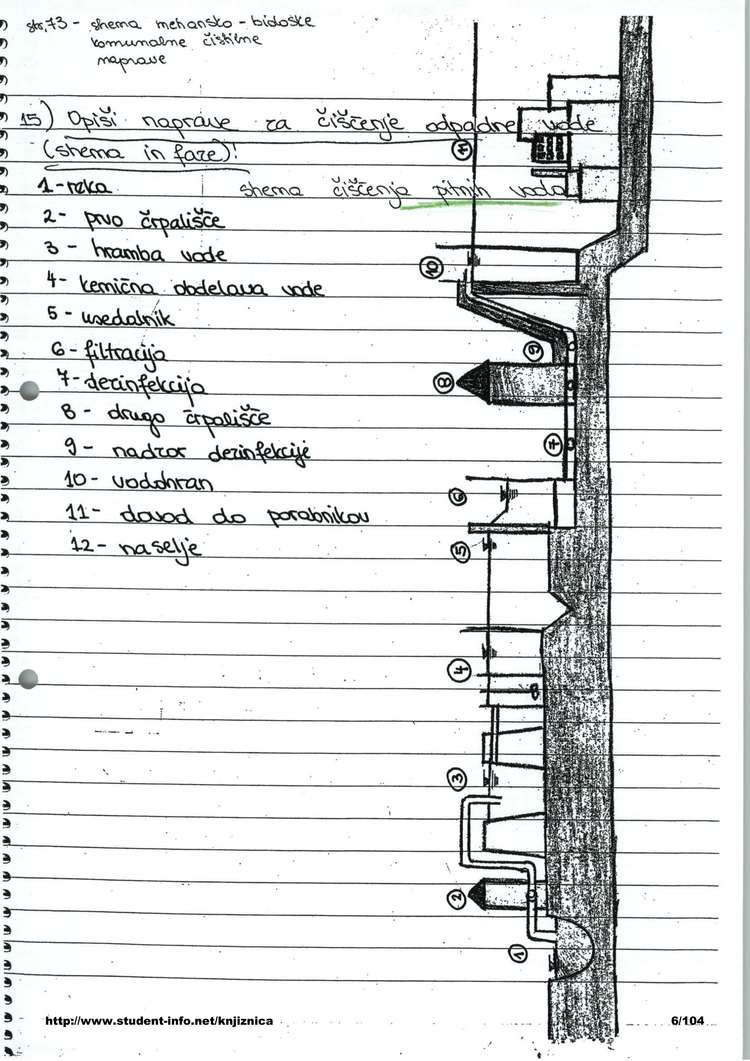 str. 73 - shema mehansko - biološke
komunalne čistilne
naprave
15) Opiši naprave za čiščenje odpadne vode
(shema in faze)!
1 - reka
shema čiščenja pitnih voda
2 - prvo črpališče
3 - hramba vode
4 - kemična obdelava vode
5 - usedalnik
6 - filtracija
7 - dezinfekcija
8 - drugo črpališče
9 - nadzor dezinfekcije
10 - vodohran
11 - dovod do porabnikov
12 - naselje
11
10
9
8
7
6
5
4
3
2
1
http://www.student-info.net/knjiznica
6/104